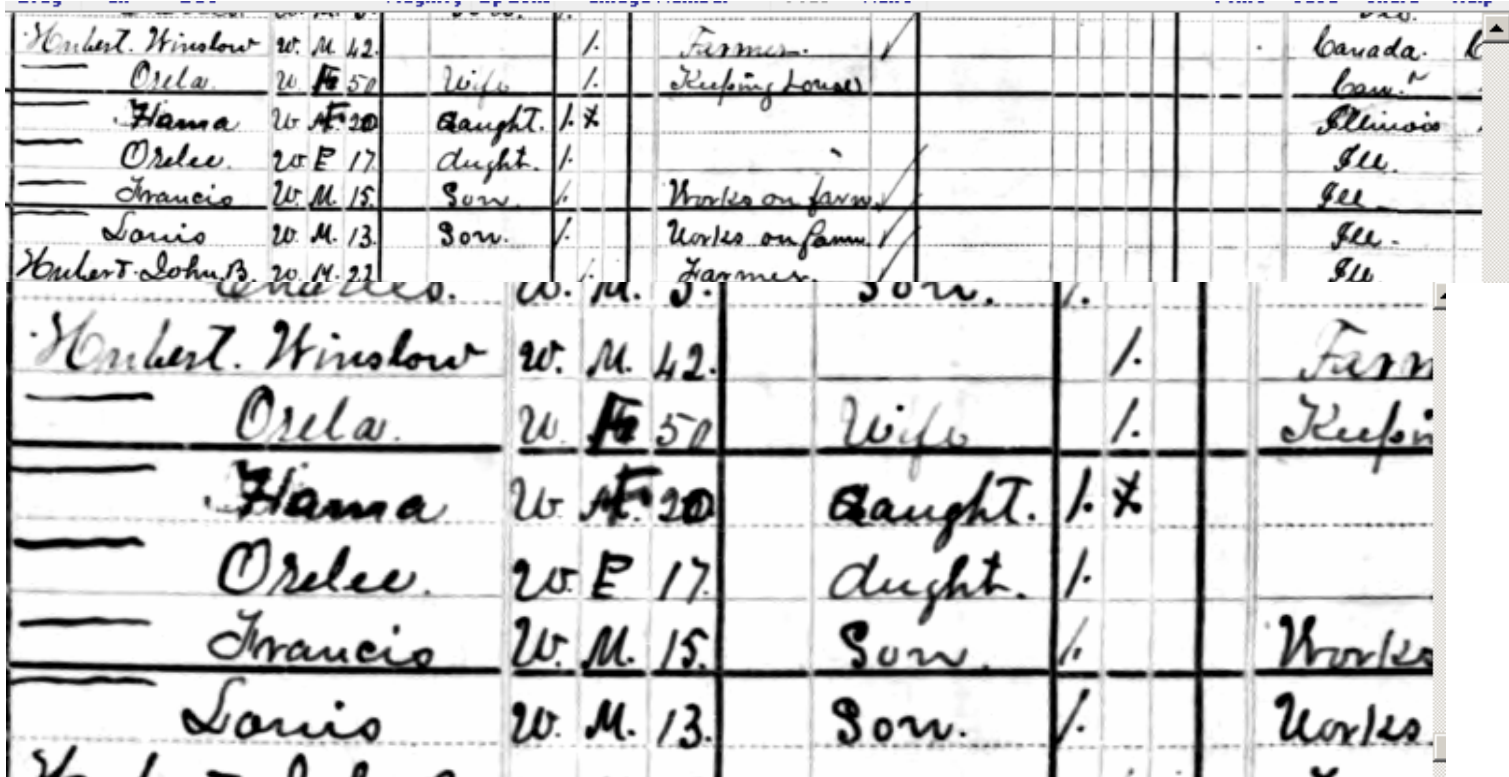 Hubert. Winslow W. M. 42. 1. Farmer. Canada.
Orela. W. F 50 Wife 1. Keeping house Can.
Hama W F. 20 daught. 1. Illinois
Orelee. W F 17. dught. 1. Ill.
Francis W. M. 15. Son. 1. Works on farm. Ill.
Louis W. M. 13. Son. 1. Works on farm Ill.
Hubert. John B. W. M. 22. 1. Farmer. Ill
Charles. W. M. 5. Son. 1.
Hubert. Winslow W. M. 42. 1. Farm
Orela. W. F 50 Wife 1. Keepin
Hama W F. 20 daught. 1.
Orelee. W. F 17. dught. 1.
Francis W. M. 15. Son. 1. Works
Louis W. M. 13. Son. 1. Works